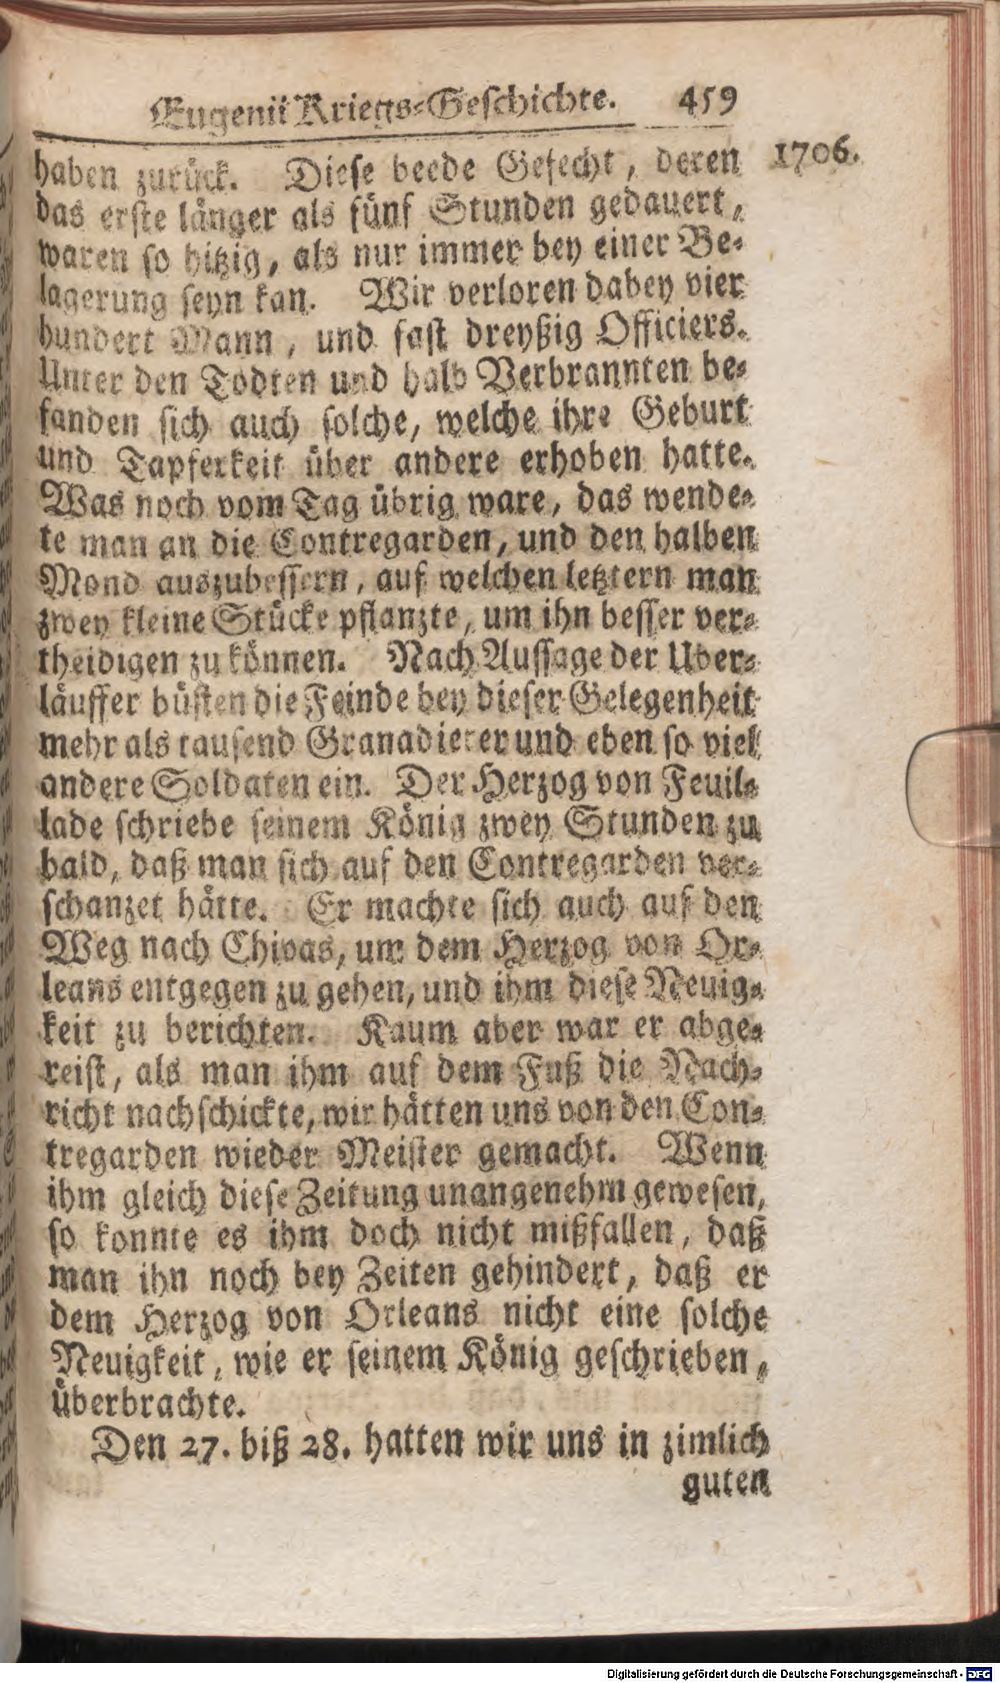 Eugenii Kriegs-Geschichte. 459
1706.
haben zurück. Diese beede Gefecht, deren
das erste länger als fünf Stunden gedauert,
waren so hitzig, als nur immer bey einer Be-
lagerung seyn kan. Wir verloren dabey vier
hundert Mann, und fast dreyßig Officiers.
Unter den Todten und halb Verbrannten be-
fanden sich auch solche, welche ihre Geburt
und Tapferkeit über andere erhoben hatte.
Was noch vom Tag übrig ware, das wende-
te man an die Contregarden, und den halben
Mond auszubessern, auf welchen letztern man
zwey kleine Stücke pflanzte, um ihn besser ver-
theidigen zu können. Nach Aussage der Uber-
läuffer büsten die Feinde bey dieser Gelegenheit
mehr als tausend Granadierer und eben so viel
andere Soldaten ein. Der Herzog von Feuil-
lade schriebe seinem König zwey Stunden zu
bald, daß man sich auf den Contregarden ver-
schanzet hätte. Er machte sich auch auf den
Weg nach Chivas, um dem Herzog von Or-
leans entgegen zu gehen, und ihm diese Neuig-
keit zu berichten. Kaum aber war er abge-
reist, als man ihm auf dem Fuß die Nach-
richt nachschickte, wir hätten uns von den Con-
tregarden wieder Meister gemacht. Wenn
ihm gleich diese Zeitung unangenehm gewesen,
so konnte es ihm doch nicht mißfallen, daß
man ihn noch bey Zeiten gehindert, daß er
dem Herzog von Orleans nicht eine solche
Neuigkeit, wie er seinem König geschrieben,
überbrachte.
Den 27. biß 28. hatten wir uns in zimlich
guten
Digitalisierung gefördert durch die Deutsche Forschungsgemeinschaft - DFG